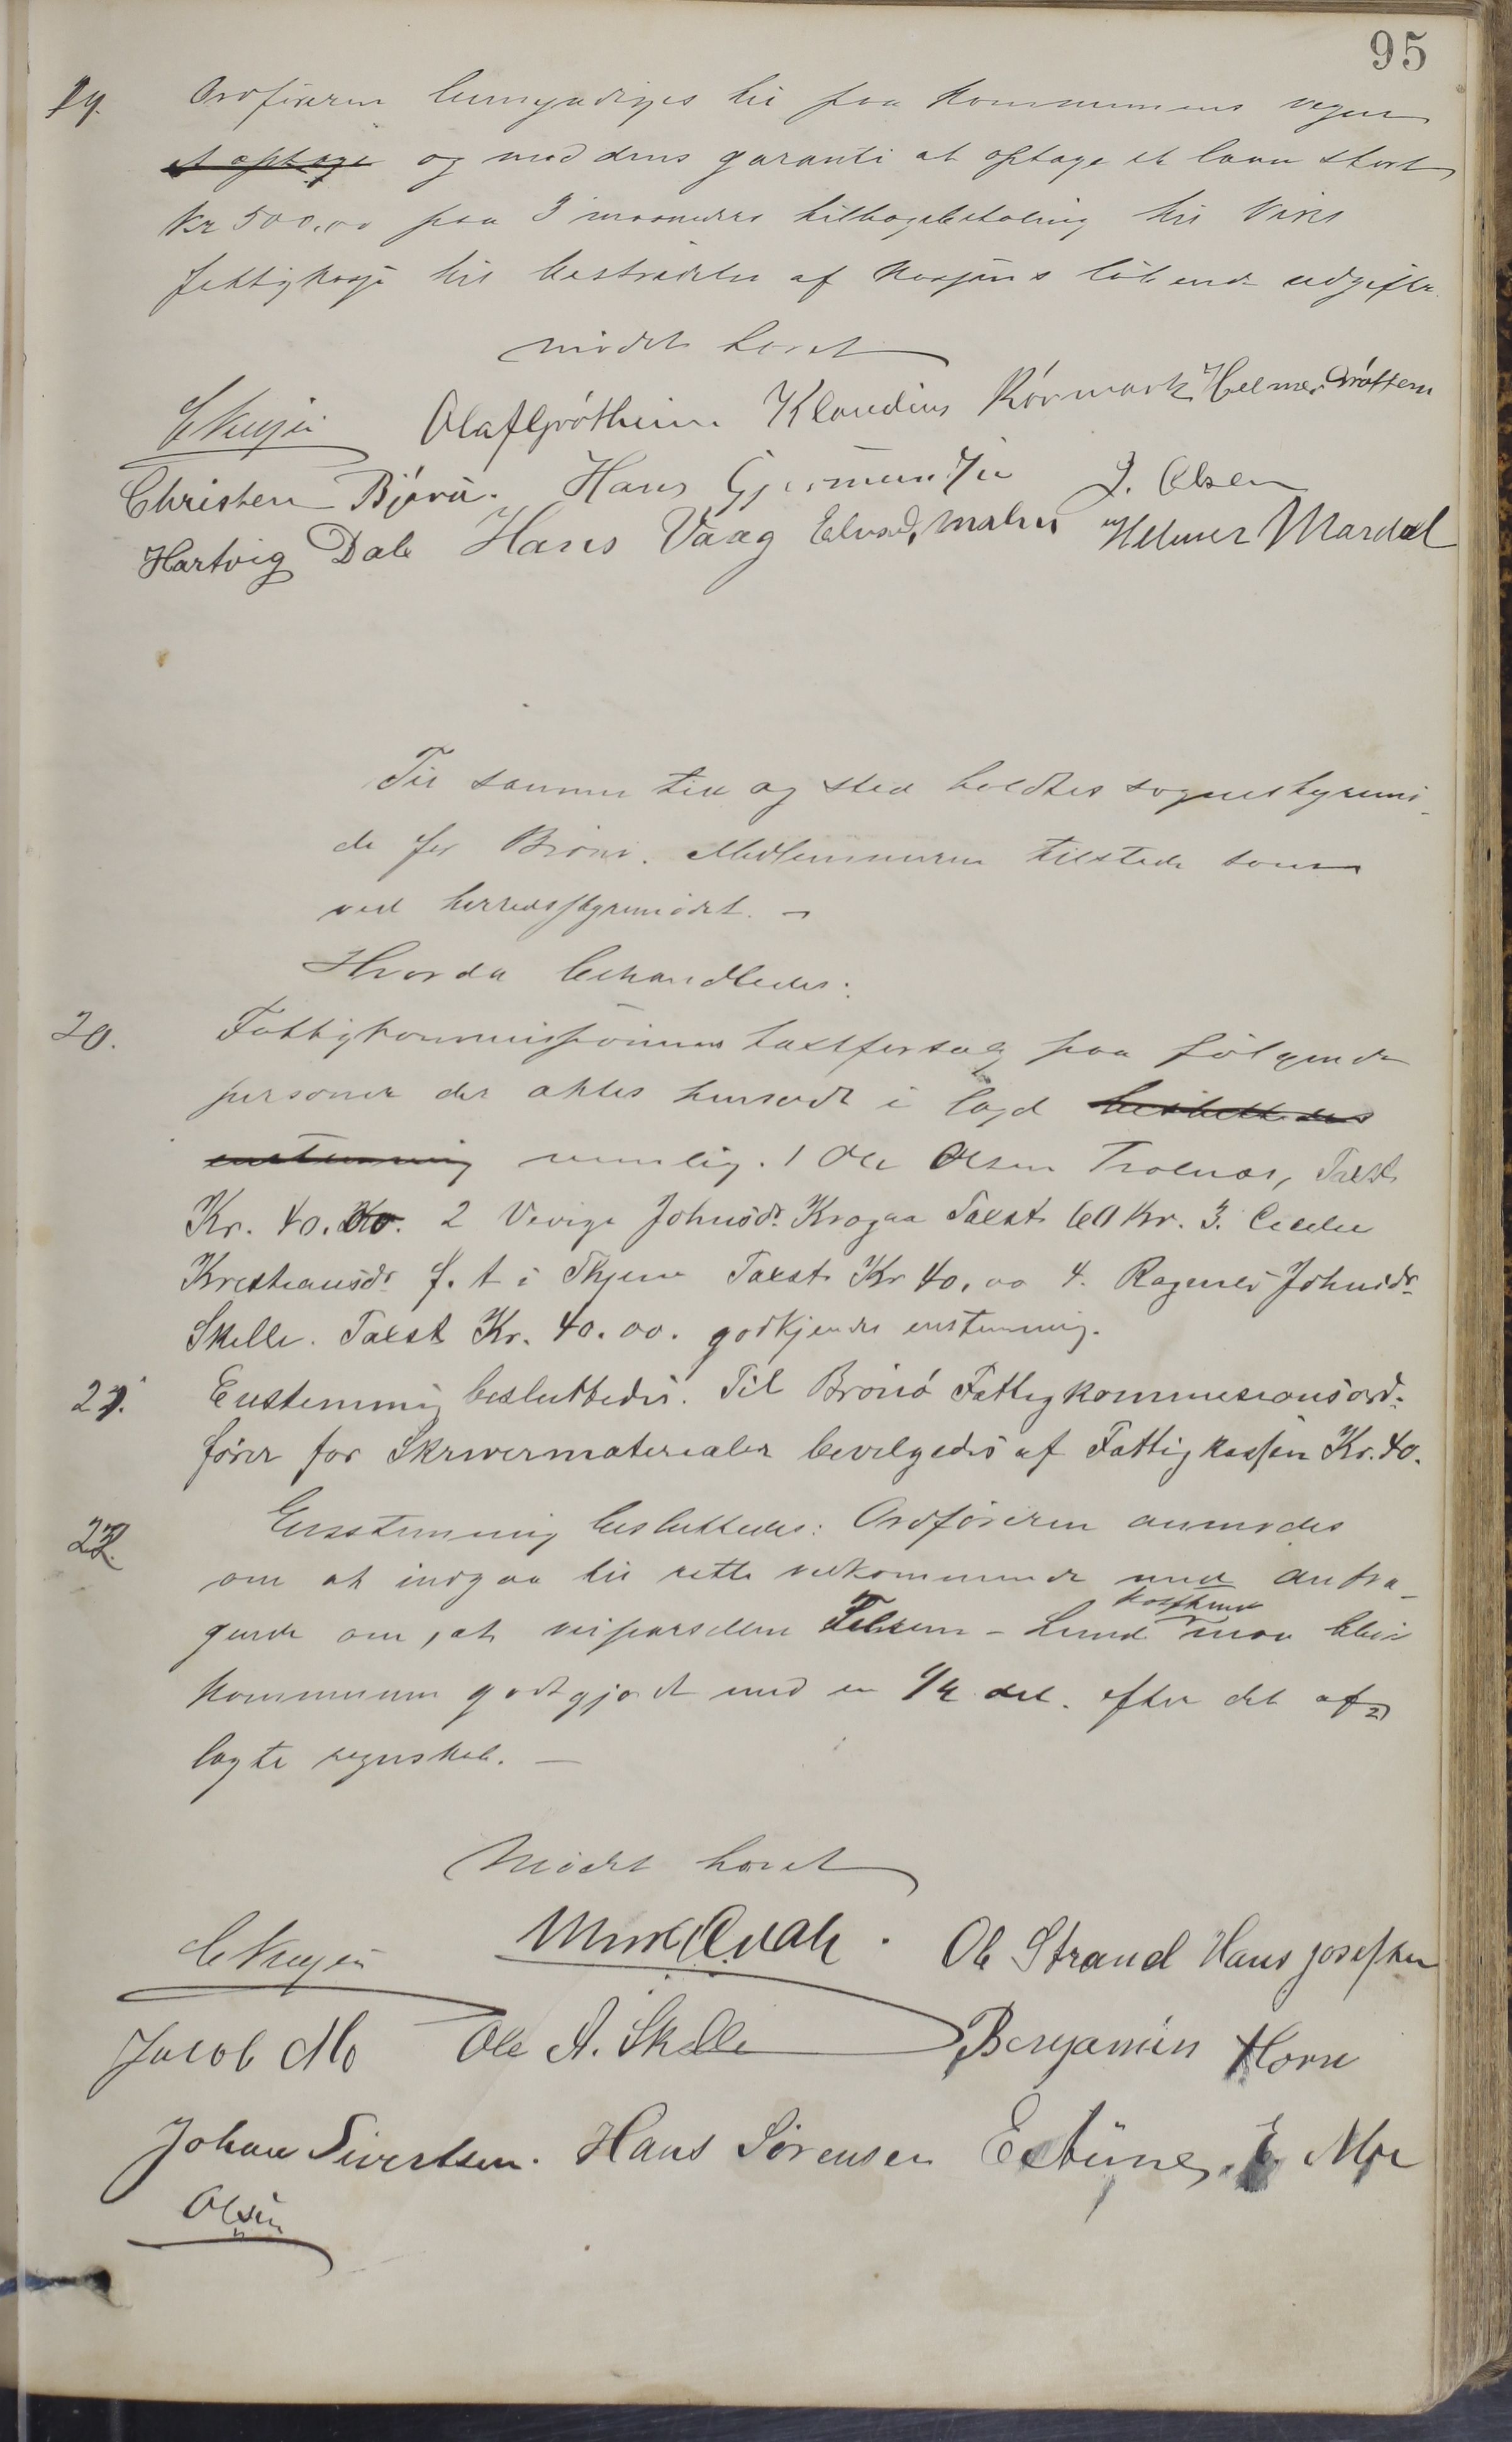 95
19. Ordføreren bemyndiges til paa kommunens vegne
at optage og med dens garanti at optage et laan stort
Kr 500,00 paa 3 maaneders tilbagebetaling til Viks
fattigkasse til bestridelse af kassens løbende udgifter.
mødet hævet
Olaf Grøtheim Klaudius Rørmark Helmer Grøttem
Christen Bjørn. Hans J. Olsen
Hartvig Dale Hans Vaag Helmer Mardal
Til samme tid og sted holdtes sognestyremø-
de for Brønø. Medlemmerne tilstede som
ved herredsstyremødet. -
Hvorda behandledes:
20. Fattigkommissionens taxtforslag paa følgende
personer der aktes hensadt i lægd besluttedes
enstemmig nemlig. 1 Ole Olsen Trælnæs, Taxt
Kr. 40. 2 Johnsdr. Krogaa Taxst 60 Kr. 3.
Kristiansdr. f. t. i Skjern Taxst Kr 40,00 4. Johnsdr.
Skille. Taxst Kr. 40.00. godkjendes enstemmig.
21. Enstemmig besluttedes. Til Brønø Fattigkommisionsord-
fører for Skrivermaterialer bevilgedes af Fattigkassen Kr. 40.
22. Enstemmig besluttedes: Ordføreren anmodes
om at indgaa til rette vedkommende med andra-
gende om, at veiparsellen - Lund maa blive
kommunen godtgjort med en 1/4 del. efter det af-
lagte regnskab. -
Mødet hævet
Ole Strand Hans Josefsen
Jacob Mo Ole A. Skille Benjamin Horn
Johan Sivertsen. Hans Sørensen E. Moe
Olsen